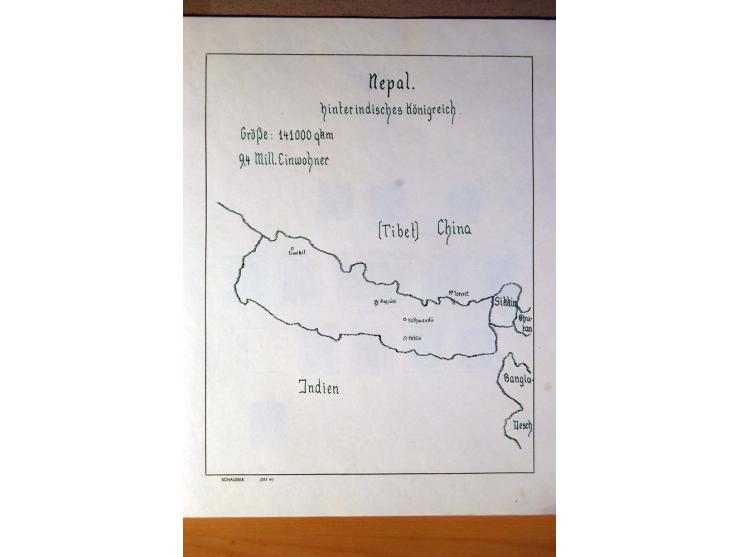 Nepal.
hinterindisches Königreich.
Größe: 141000 qkm
9,4 Mill. Einwohner
(Tibet) China
Sikkim
Bhu-
tan
Kathmandu
Patan
Indien
Bangla-
Desch
SCHAUBEK